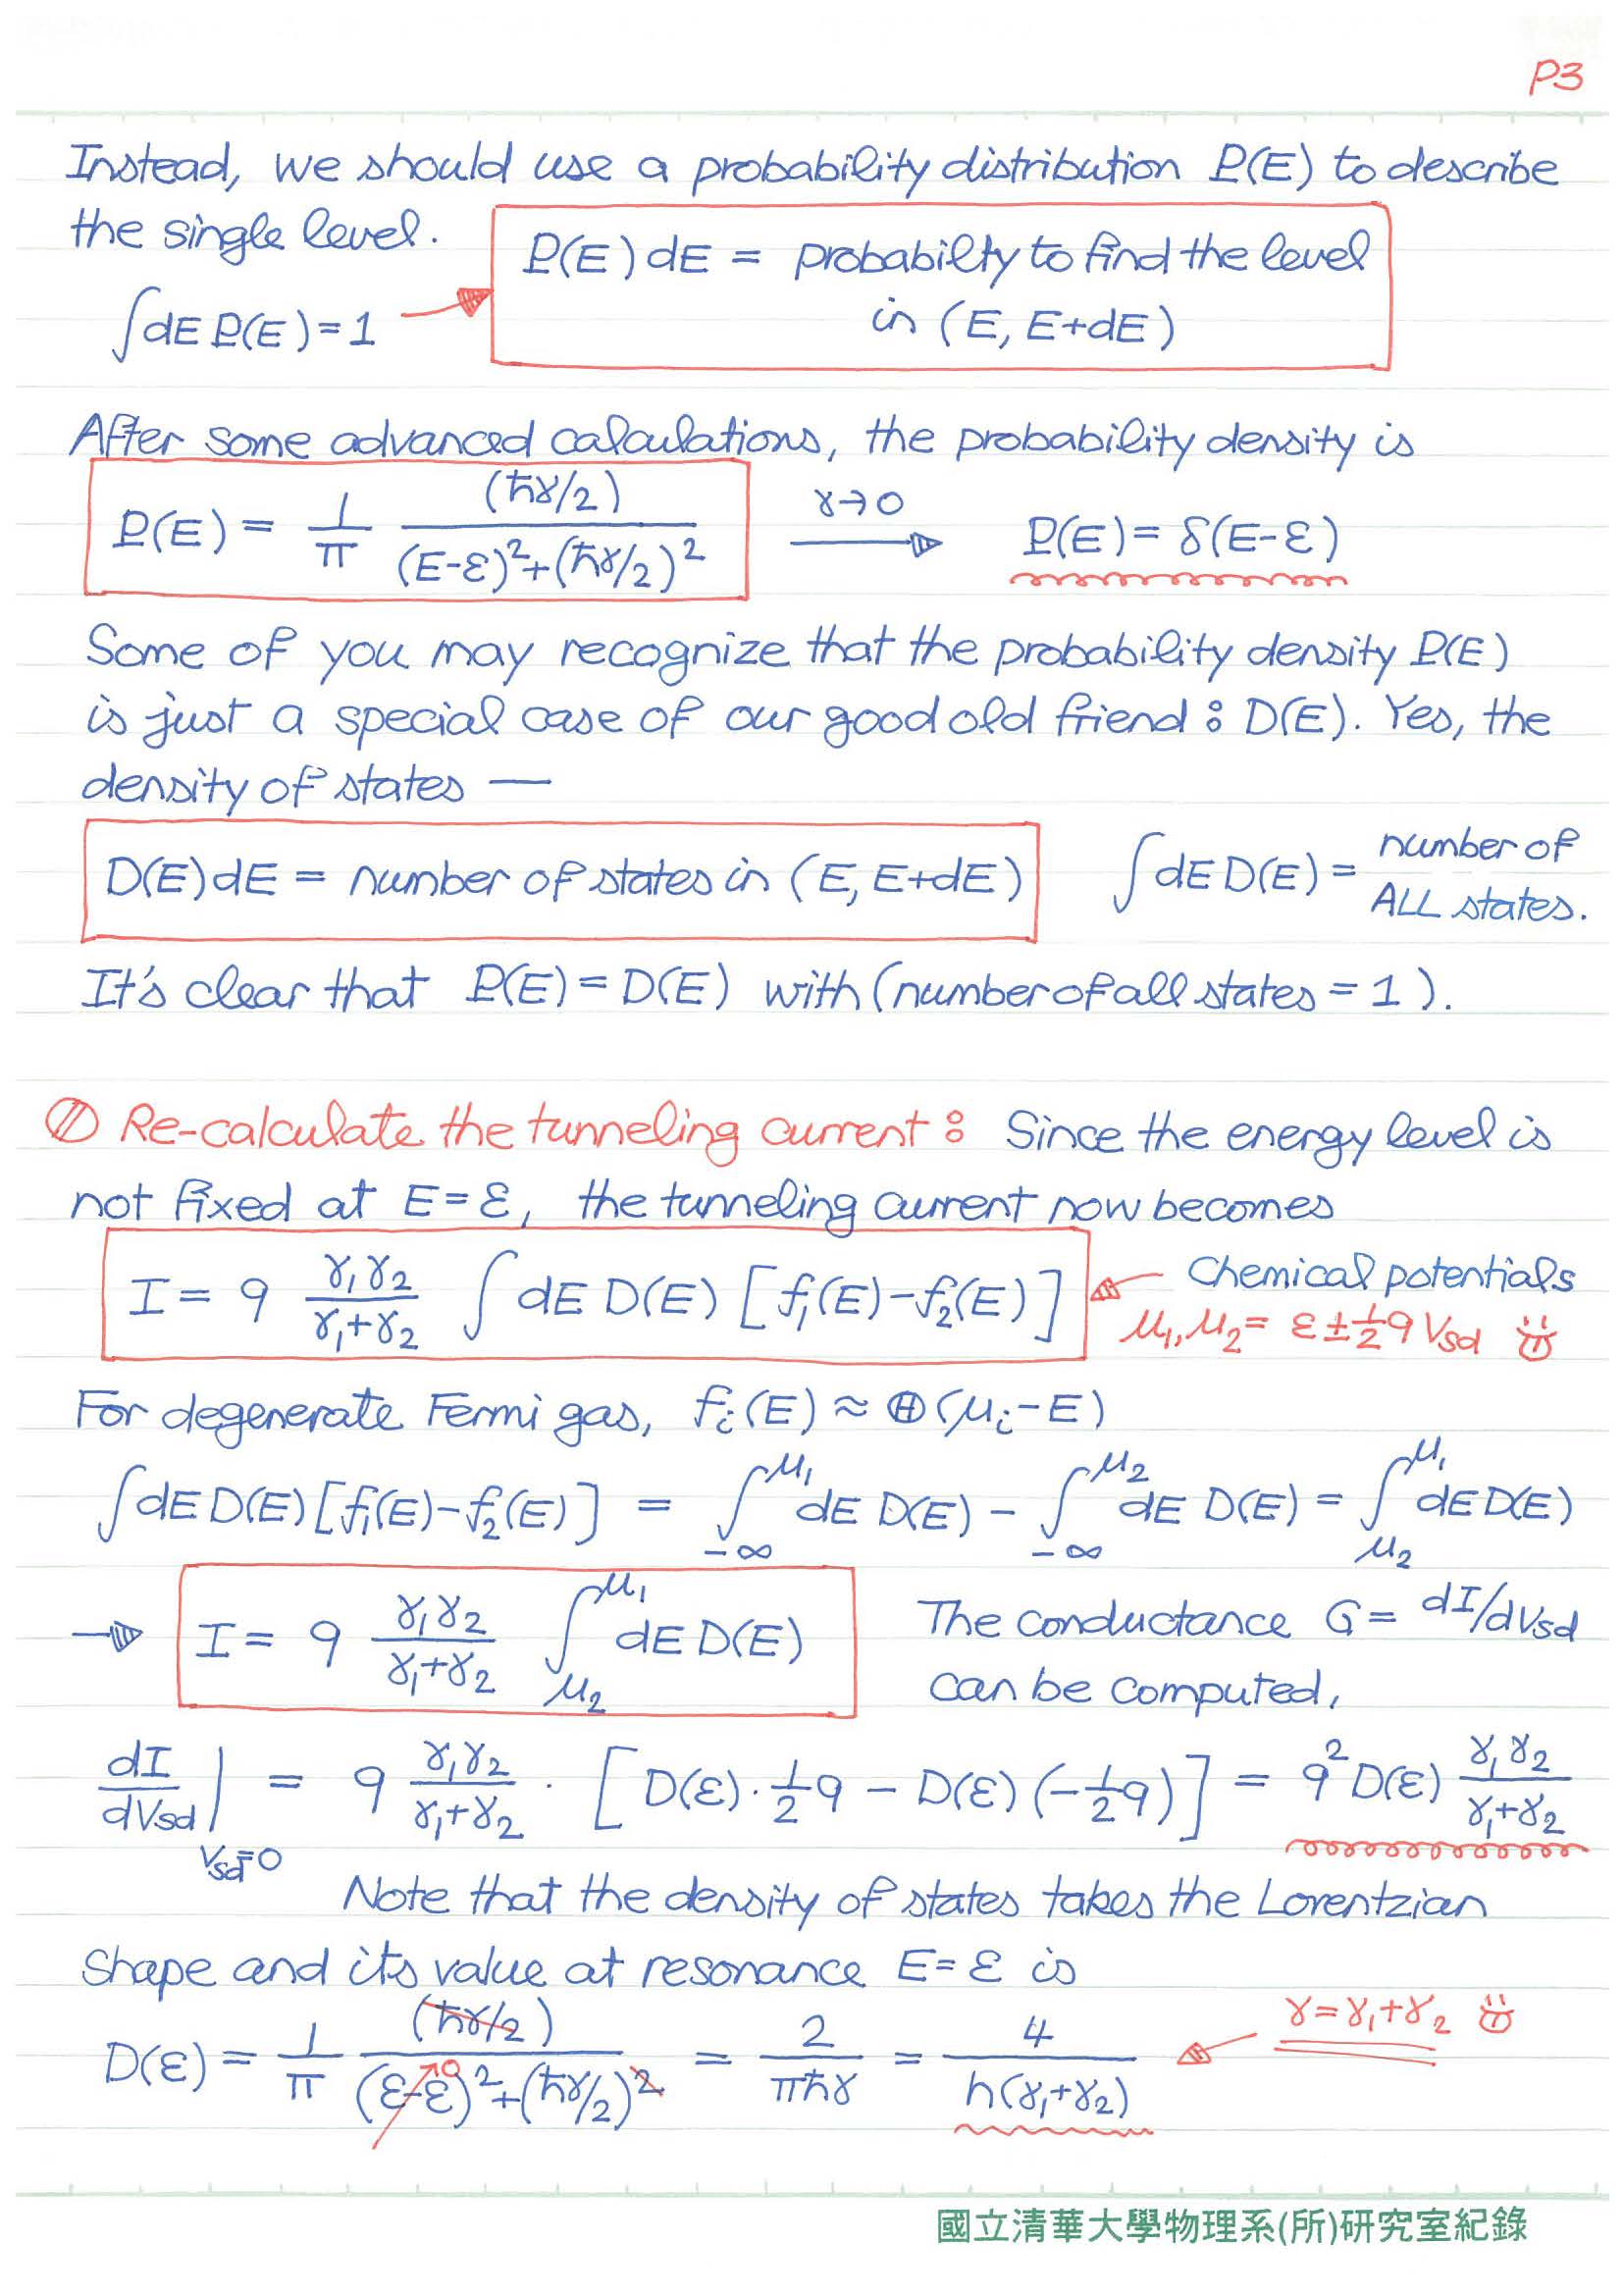 P3
Instead, we should use a probability distribution P(E) to describe
the single level.
P(E)dE = probabilty to find the level
in (E, E+dE)
∫dE P(E) = 1
After some advanced calculations, the probability density is
P(E) = 1/π (ħγ/2)/((E-ε)²+(ħγ/2)²) γ→0 P(E) = δ(E-ε)
Some of you may recognize that the probability density P(E)
is just a special case of our good old friend: D(E). Yes, the
density of states —
D(E)dE = number of states in (E, E+dE) ∫dE D(E) = number of
ALL states.
It's clear that P(E) = D(E) with (number of all states = 1).
Re-calculate the tunneling current: Since the energy level is
not fixed at E=ε, the tunneling current now becomes
I = q γ₁γ₂/(γ₁+γ₂) ∫dE D(E) [f₁(E)-f₂(E)] Chemical potentials
μ₁, μ₂ = ε ± ½qVsd
For degenerate Fermi gas, fᵢ(E) ≈ Θ(μᵢ-E)
∫dE D(E)[f₁(E)-f₂(E)] = ∫_{-∞}^{μ₁} dE D(E) - ∫_{-∞}^{μ₂} dE D(E) = ∫_{μ₂}^{μ₁} dE D(E)
→ I = q γ₁γ₂/(γ₁+γ₂) ∫_{μ₂}^{μ₁} dE D(E) The conductance G = dI/dVsd
can be computed,
dI/dVsd |_{Vsd=0} = q γ₁γ₂/(γ₁+γ₂) · [D(ε)·½q - D(ε)(-½q)] = q² D(ε) γ₁γ₂/(γ₁+γ₂)
Note that the density of states takes the Lorentzian
shape and its value at resonance E=ε is
D(ε) = 1/π (ħγ/2)/((ε-ε)²+(ħγ/2)²) = 2/(πħγ) = 4/(h(γ₁+γ₂)) γ=γ₁+γ₂
0
國立清華大學物理系(所)研究室紀錄